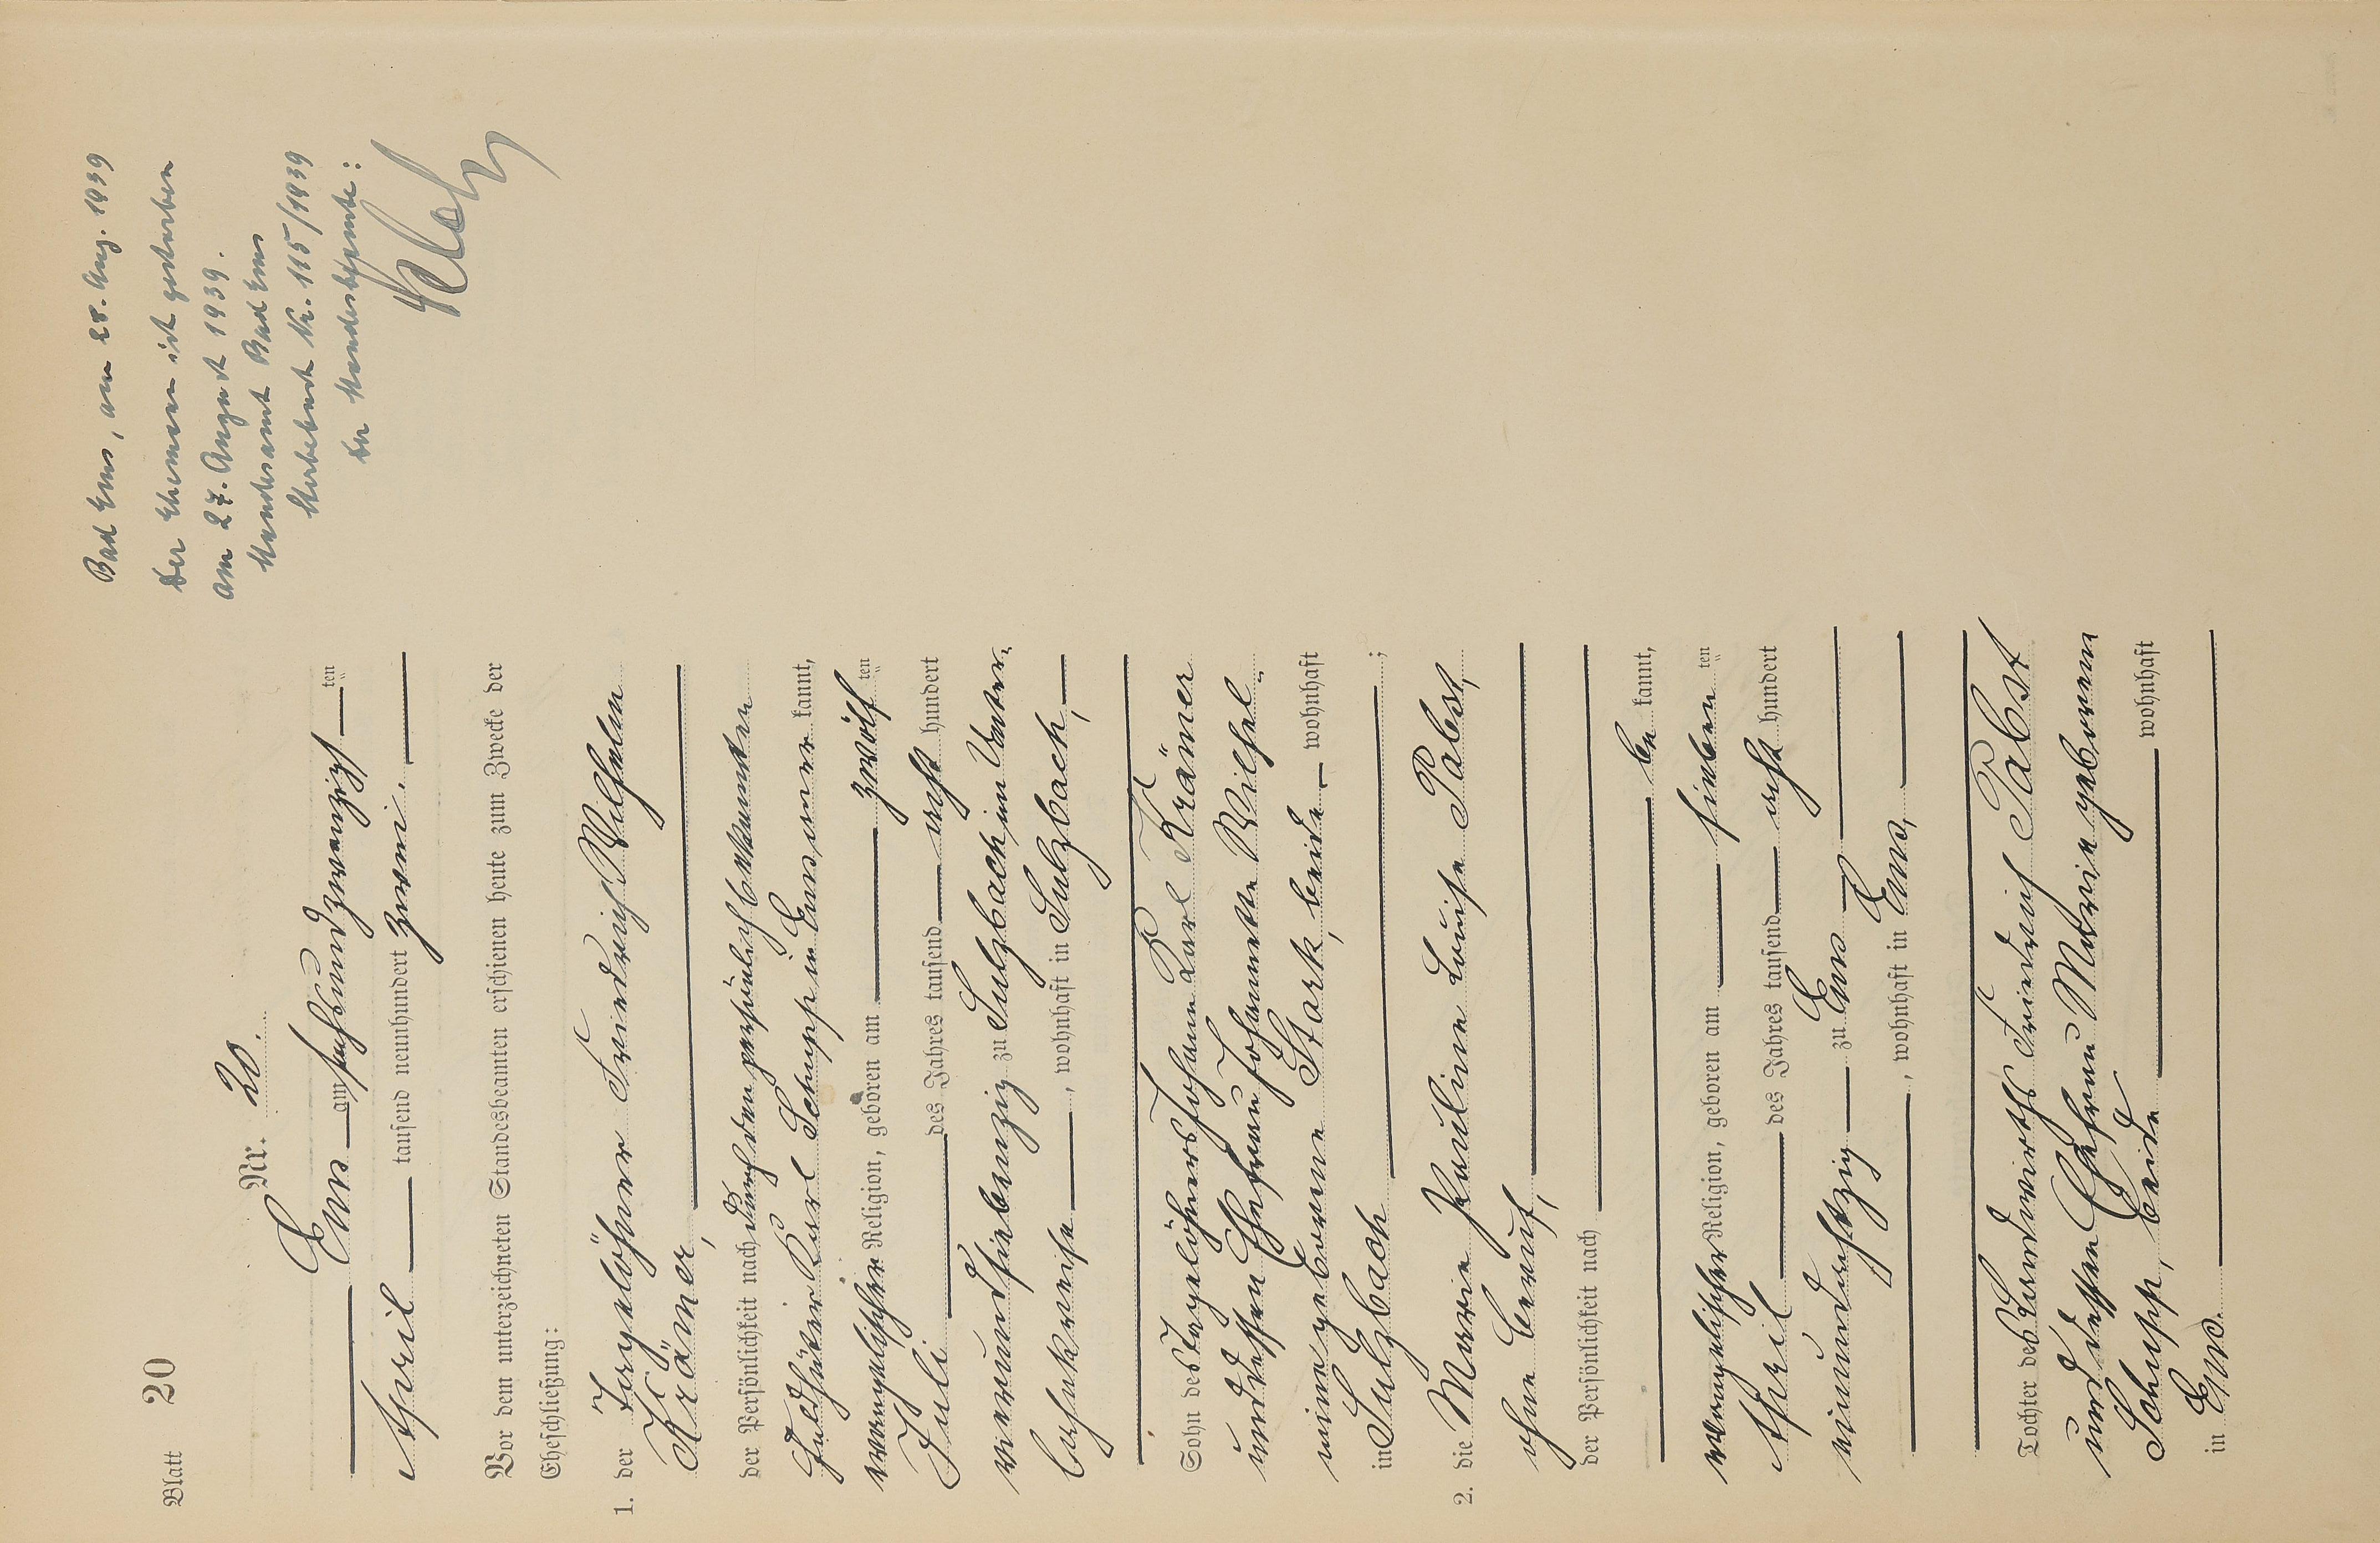 Blatt 20
Nr. 20.
Ems am sechsundzwanzigsten
April tausend neunhundert zwei.
Vor dem unterzeichneten Standesbeamten erschienen heute zum Zwecke der
Eheschließung:
1. der Tagelöhner Friedrich Wilhelm
Krämer,
der Persönlichkeit nach durch den persönlich bekannten
Karl Schupp in Ems kannt,
evangelischer Religion, geboren am zwölften
Juli des Jahres tausend acht hundert
vierundsiebenzig zu Sulzbach im Unter-
lahnkreise, wohnhaft in Sulzbach,
Sohn des Tagelöhners Johann Karl Krämer
und dessen Ehefrau Johannette Wilhel-
mine geborene Stark, beide wohnhaft
in Sulzbach;
2. die Marie Pauline Louise Pabst,
ohne Beruf,
der Persönlichkeit nach
be kannt,
evangelischer Religion, geboren am siebenten
April des Jahres tausend acht hundert
einundachtzig zu Ems
, wohnhaft in Ems,
Tochter des Landwirths Friedrich Pabst
und dessen Ehefrau Marie geborenen
Schupp, beide wohnhaft
in Ems.
Bad Ems, am 28. Aug. 1939
Der Ehemann ist gestorben
am 27. August 1939.
Standesamt Bad Ems
Sterbebuch Nr. 115/1939
Der Standesbeamte: